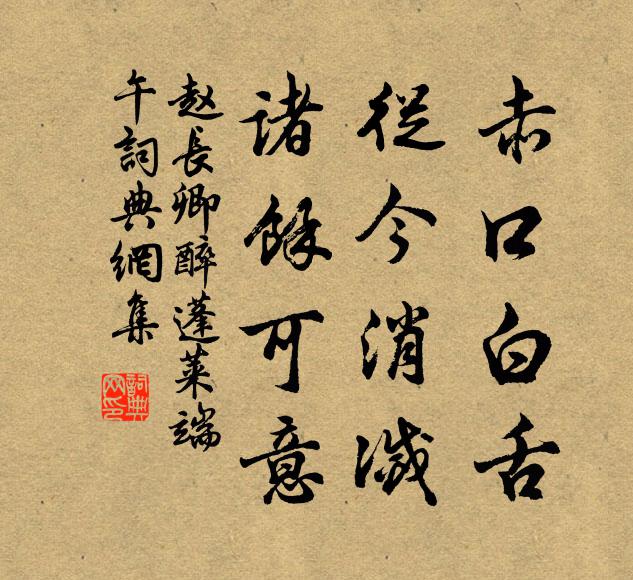 赤口白舌
從今消滅
諸餘可意
赵長卿醉蓬萊端
午詞典網集
詞典
网印